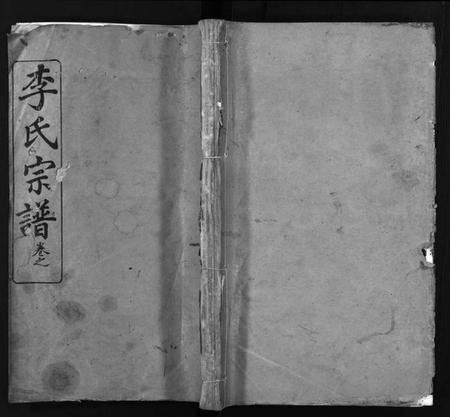 李氏宗譜卷之